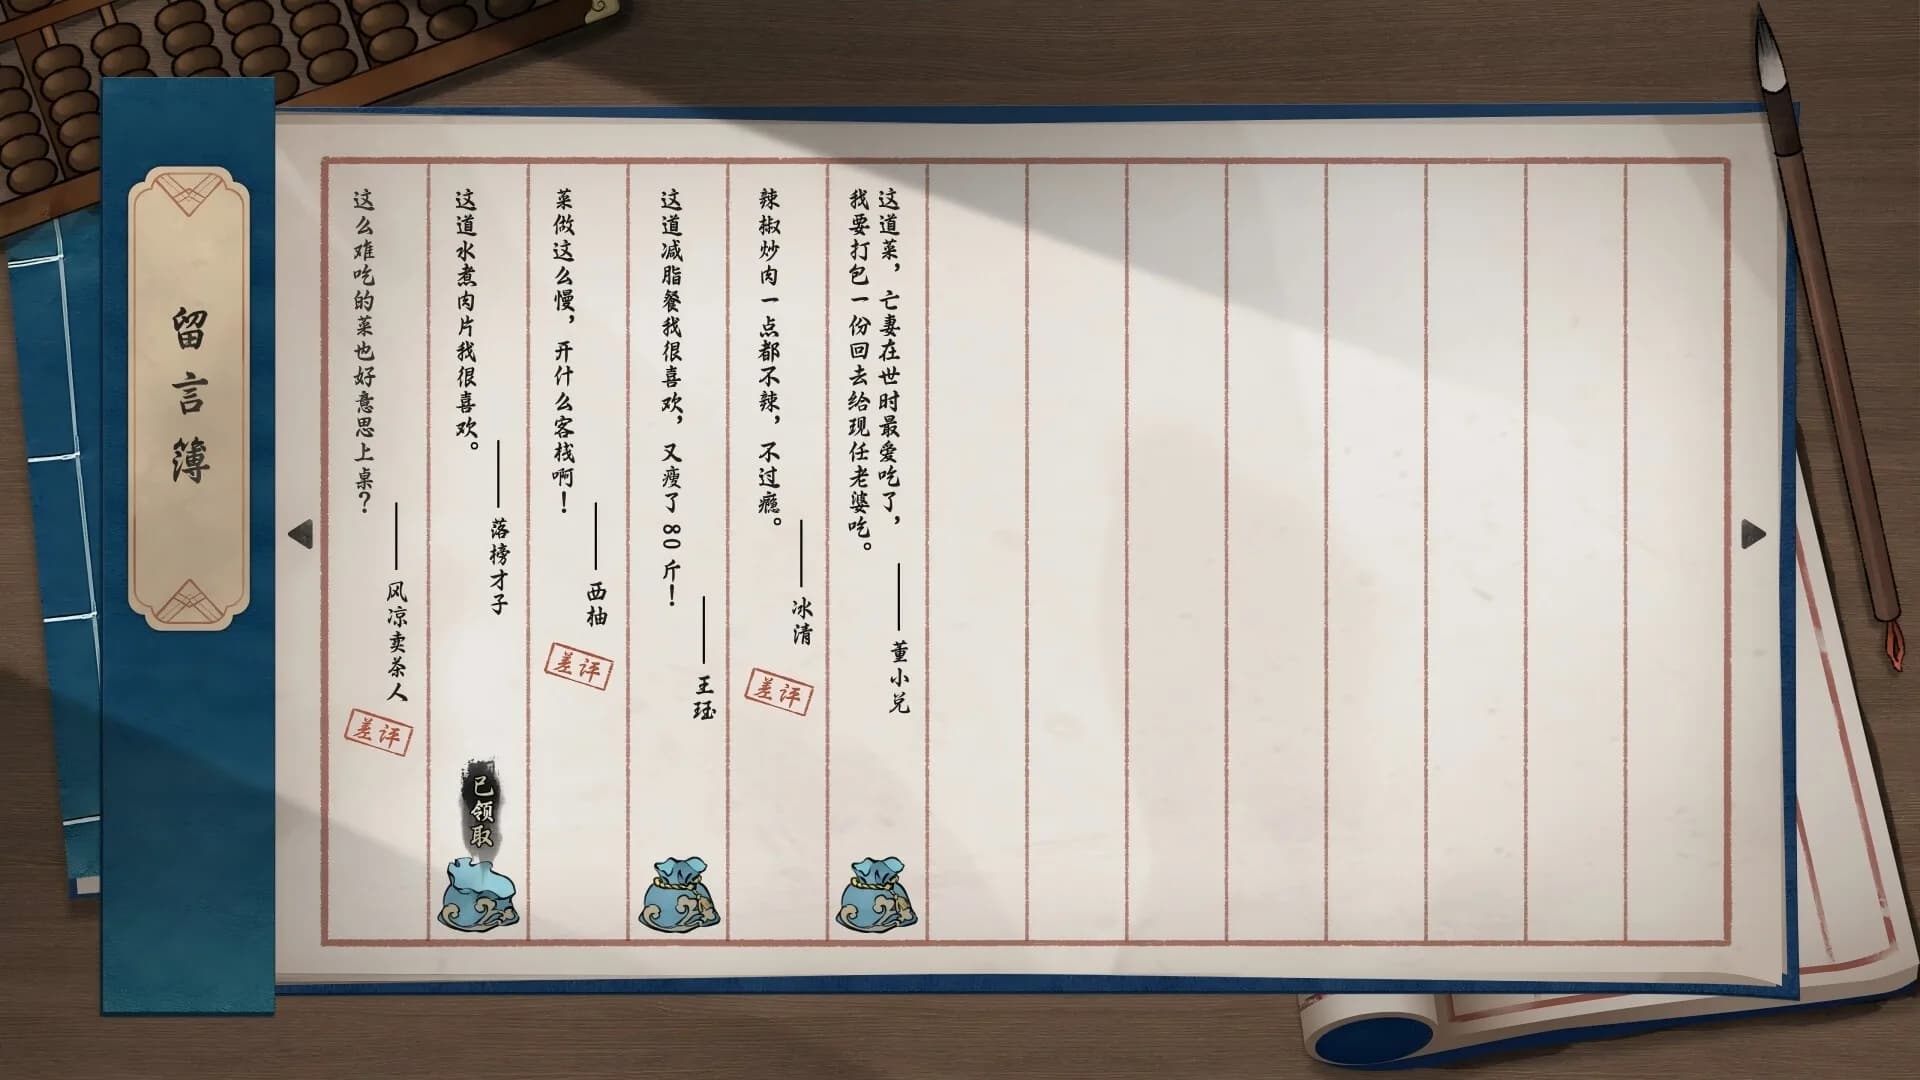 留言簿
这么难吃的菜也好意思上桌？
——风凉卖茶人
差评
这道水煮肉片我很喜欢。
——落榜才子
已领取
菜做这么慢，开什么客栈啊！
——西柚
差评
这道减脂餐我很喜欢，又瘦了80斤！
——王珏
辣椒炒肉一点都不辣，不过瘾。
——冰清
差评
这道菜，亡妻在世时最爱吃了，
我要打包一份回去给现任老婆吃。
——董小兑